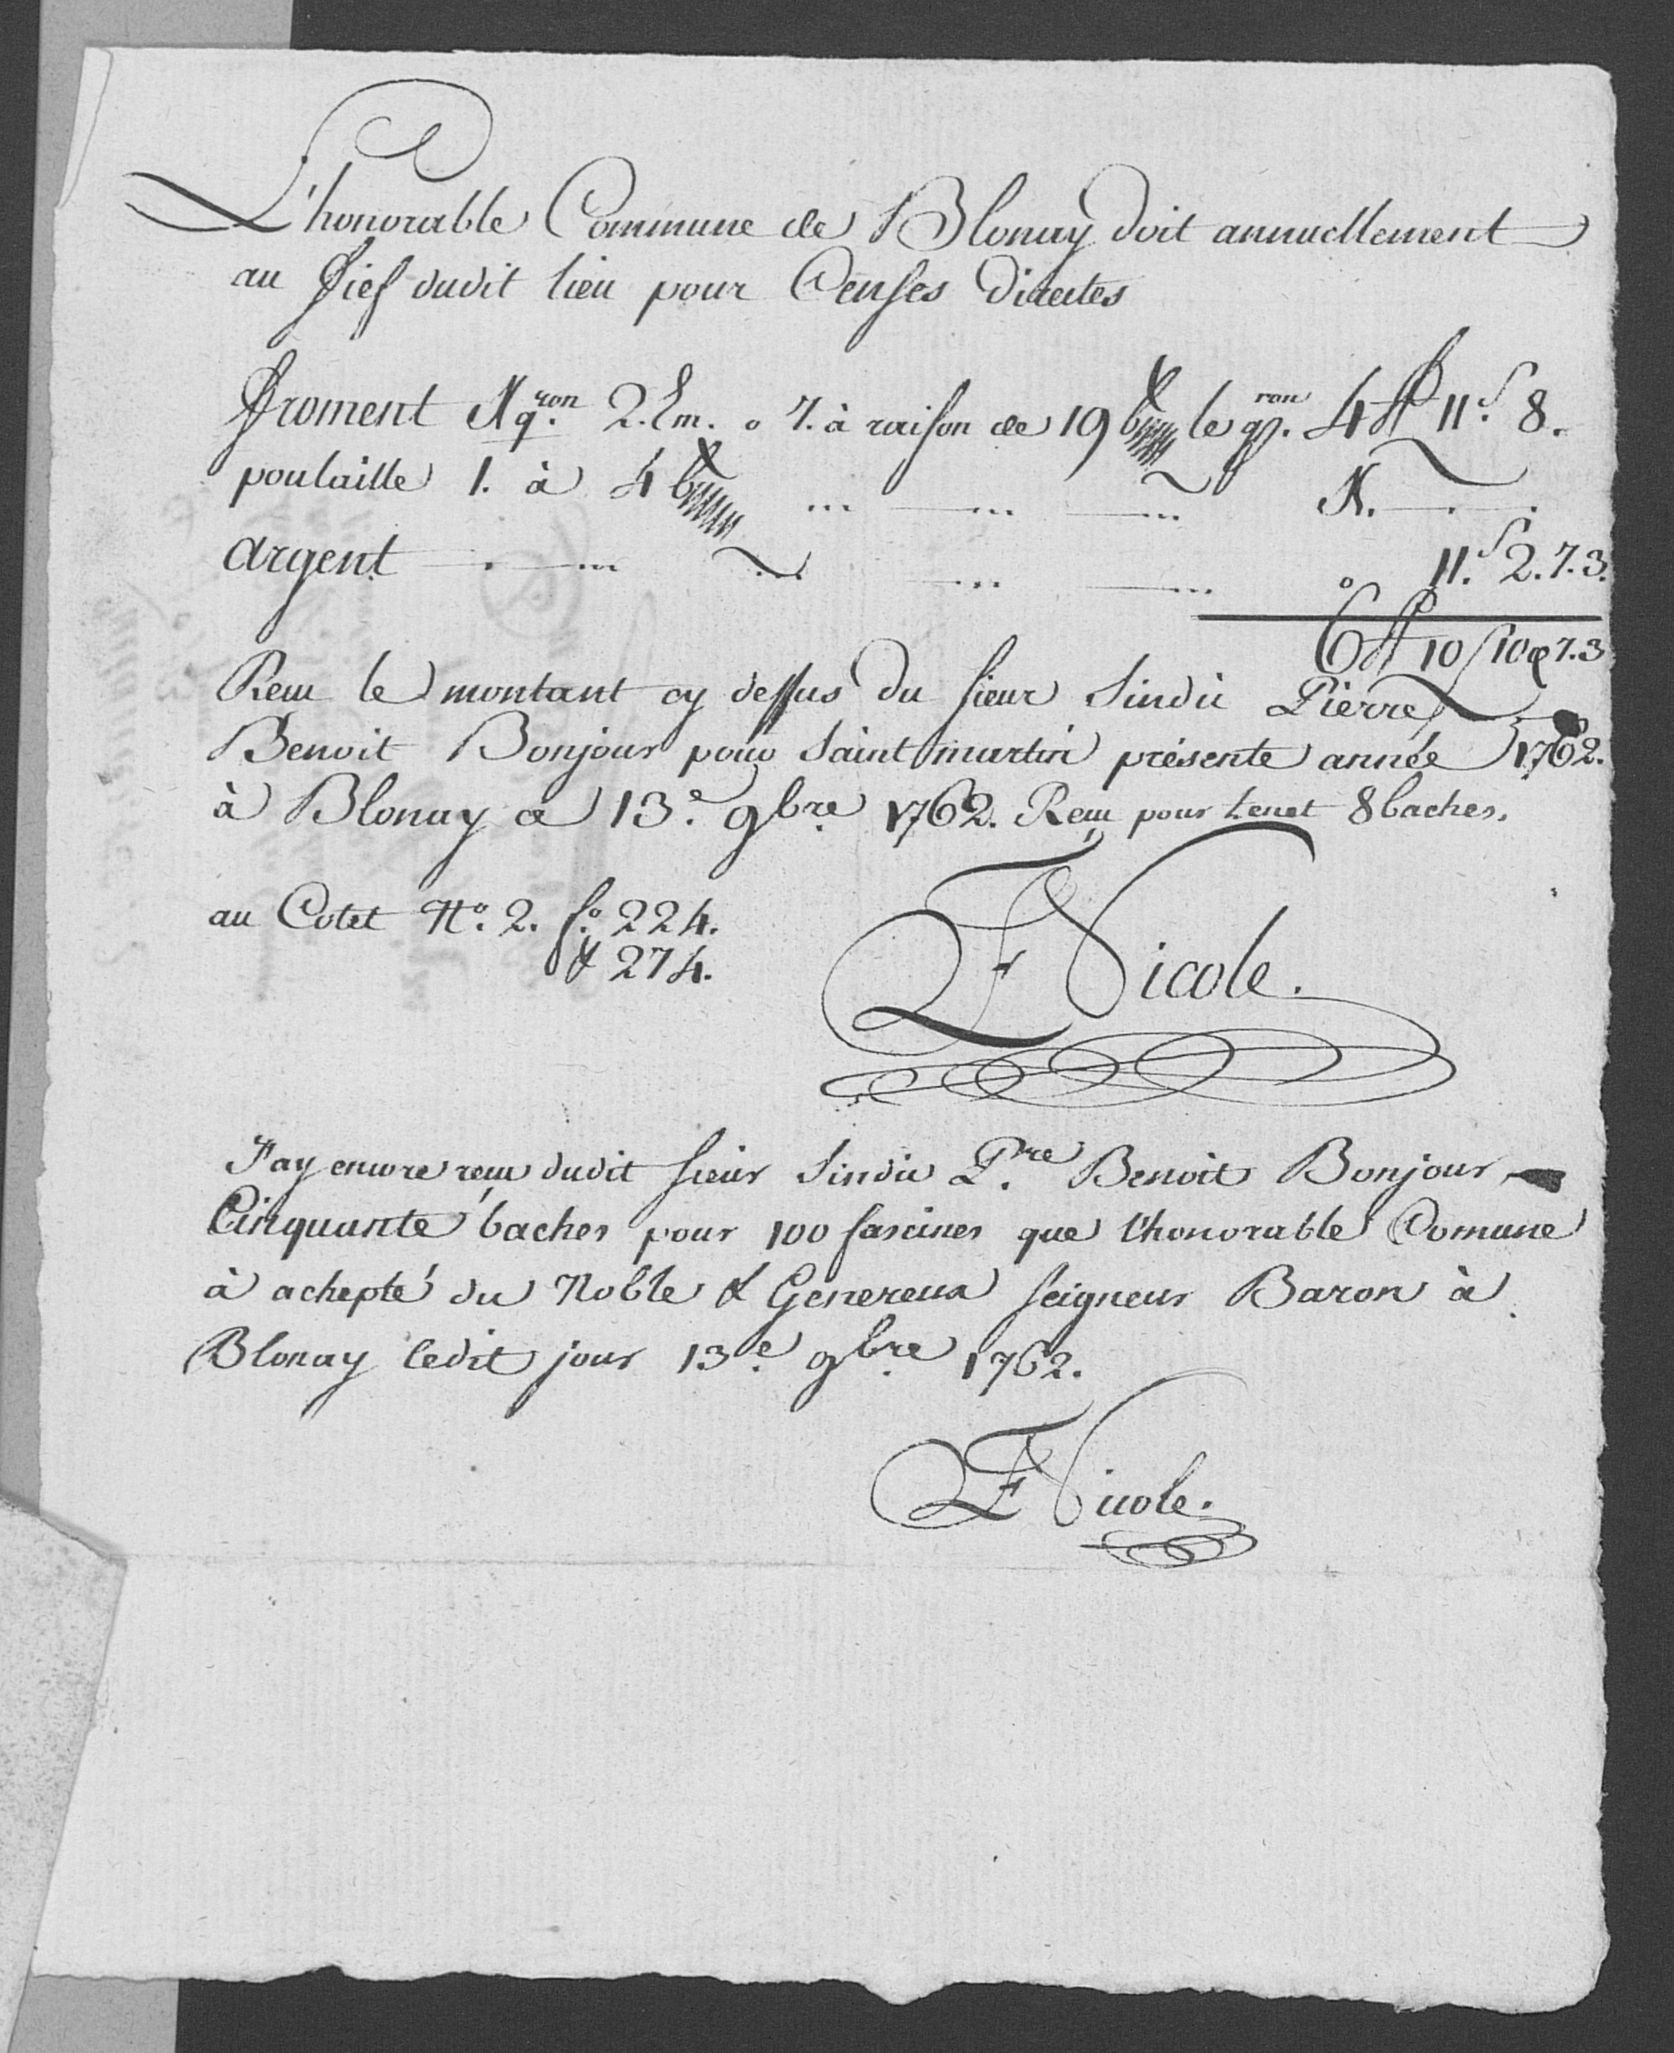 L'honorable Commune de Blonay doit annuellement
au fief dudit lieu pour Censes Directes
froment 1 q.ron 2. Em. 0 7. à raison de 19 le q.ron 4 ff 11.s 8.
poulaille 1. à 4 ... ... ... 1. . .
argent . ... ... ... ... 0 11.s 2.7.3.
6 ff 10 s 10 & 7.3
Reçu le montant cy dessus du sieur Sindic Pierre
Benoit Bonjour pour Saint martin présente année 1762.
à Blonay ce 13.e 9bre 1762. Reçu pour Lenet 8 baches.
au Cotet N.o 2. f.o 224.
& 274.
F Nicole.
J'ay encore reçu dudit sieur Sindic P.re Benoit Bonjour
Cinquante baches pour 100 fascines que l'honorable Comune
à achepté du Noble & Genereux seigneur Baron à
Blonay ledit jour 13.e 9bre 1762.
F Nicole.